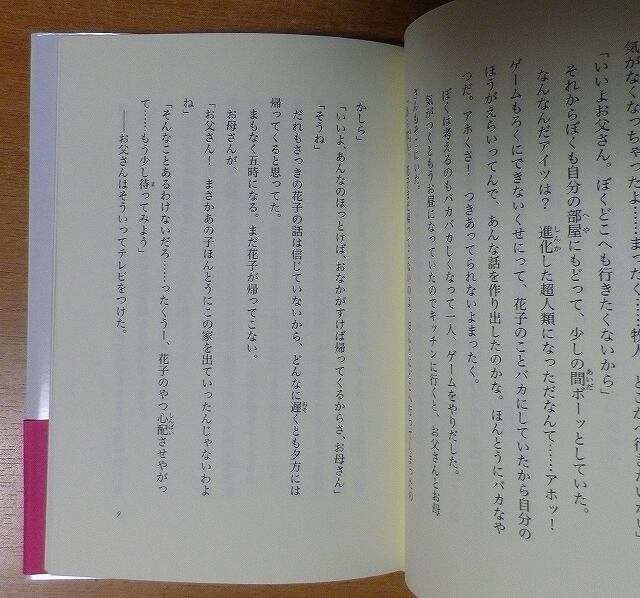 気がなくなっちゃったよ……まったく……牧人
「いいよお父さん。ぼくどこへも行きたくないから」
それからぼくも自分の部屋にもどって、少しの間ボーッとしていた。
なんなんだアイツは？　進化した超人類になっただなんて……アホッ！
ゲームもろくにできないくせにって、花子のことバカにしていたから自分の
ほうがえらいってんで、あんな話を作り出したのかな。ほんとうにバカなや
つだ。アホくさ！　つきあってられないよまったく。
ぼくは考えるのもバカバカしくなって一人、ゲームをやりだした。
気がつくともうお昼になっていたのでキッチンに行くと、お父さんとお母
さんもそこにいた。
かしら」
「いいよ、あんなのほっとけば、おなかがすけば帰ってくるからさ、お母さん」
「そうね」
だれもさっきの花子の話は信じていないから、どんなに遅くとも夕方には
帰ってくると思ってた。
まもなく五時になる。まだ花子が帰ってこない。
お母さんが、
「お父さん！　まさかあの子ほんとうにこの家を出ていったんじゃないわよ
ね」
「そんなことあるわけないだろ……ったくうー、花子のやつ心配させやがっ
て……もう少し待ってみよう」
――お父さんはそういってテレビをつけた。
9